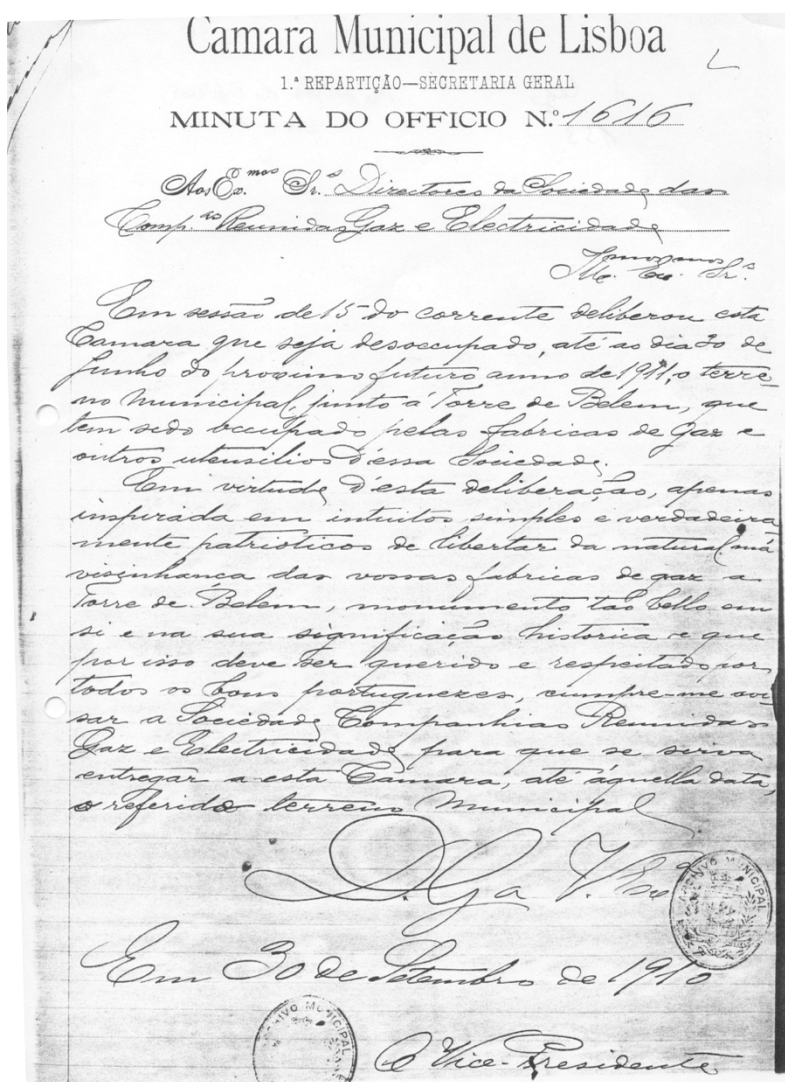 Camara Municipal de Lisboa
1.ª REPARTIÇÃO—SECRETARIA GERAL
MINUTA DO OFFICIO N.º 1616
Aos Ex.mos Sr.s Directores da Sociedade das
Comp.as Reunidas Gaz e Electricidade
Ex.mos Sr.s
Em sessão de 15 do corrente deliberou esta
Camara que seja desoccupado, até ao dia 30 de
Junho do proximo futuro anno de 1911, o terre-
no Municipal, junto á Torre de Belem, que
tem sido occupado pelas fabricas de Gaz e
outros utensilios d'essa Sociedade.
Em virtude d'esta deliberação, apenas
inspirada em intuitos simples e verdadeira
mente patrioticos de libertar da natural má
visinhança das vossas fabricas de gaz a
Torre de Belem, monumento tão bello em
si e na sua significação historica e que
por isso deve ser querido e respeitado por
todos os bons portuguezes, cumpre-me avi-
sar a Sociedade Companhias Reunidas
Gaz e Electricidade para que se sirva
entregar a esta Camara, até áquella data,
o referido terreno Municipal
D. Ga V.
ARCHIVO MUNICIPAL
Em 30 de Setembro de 1910
ARCHIVO MUNICIPAL
O Vice-Presidente